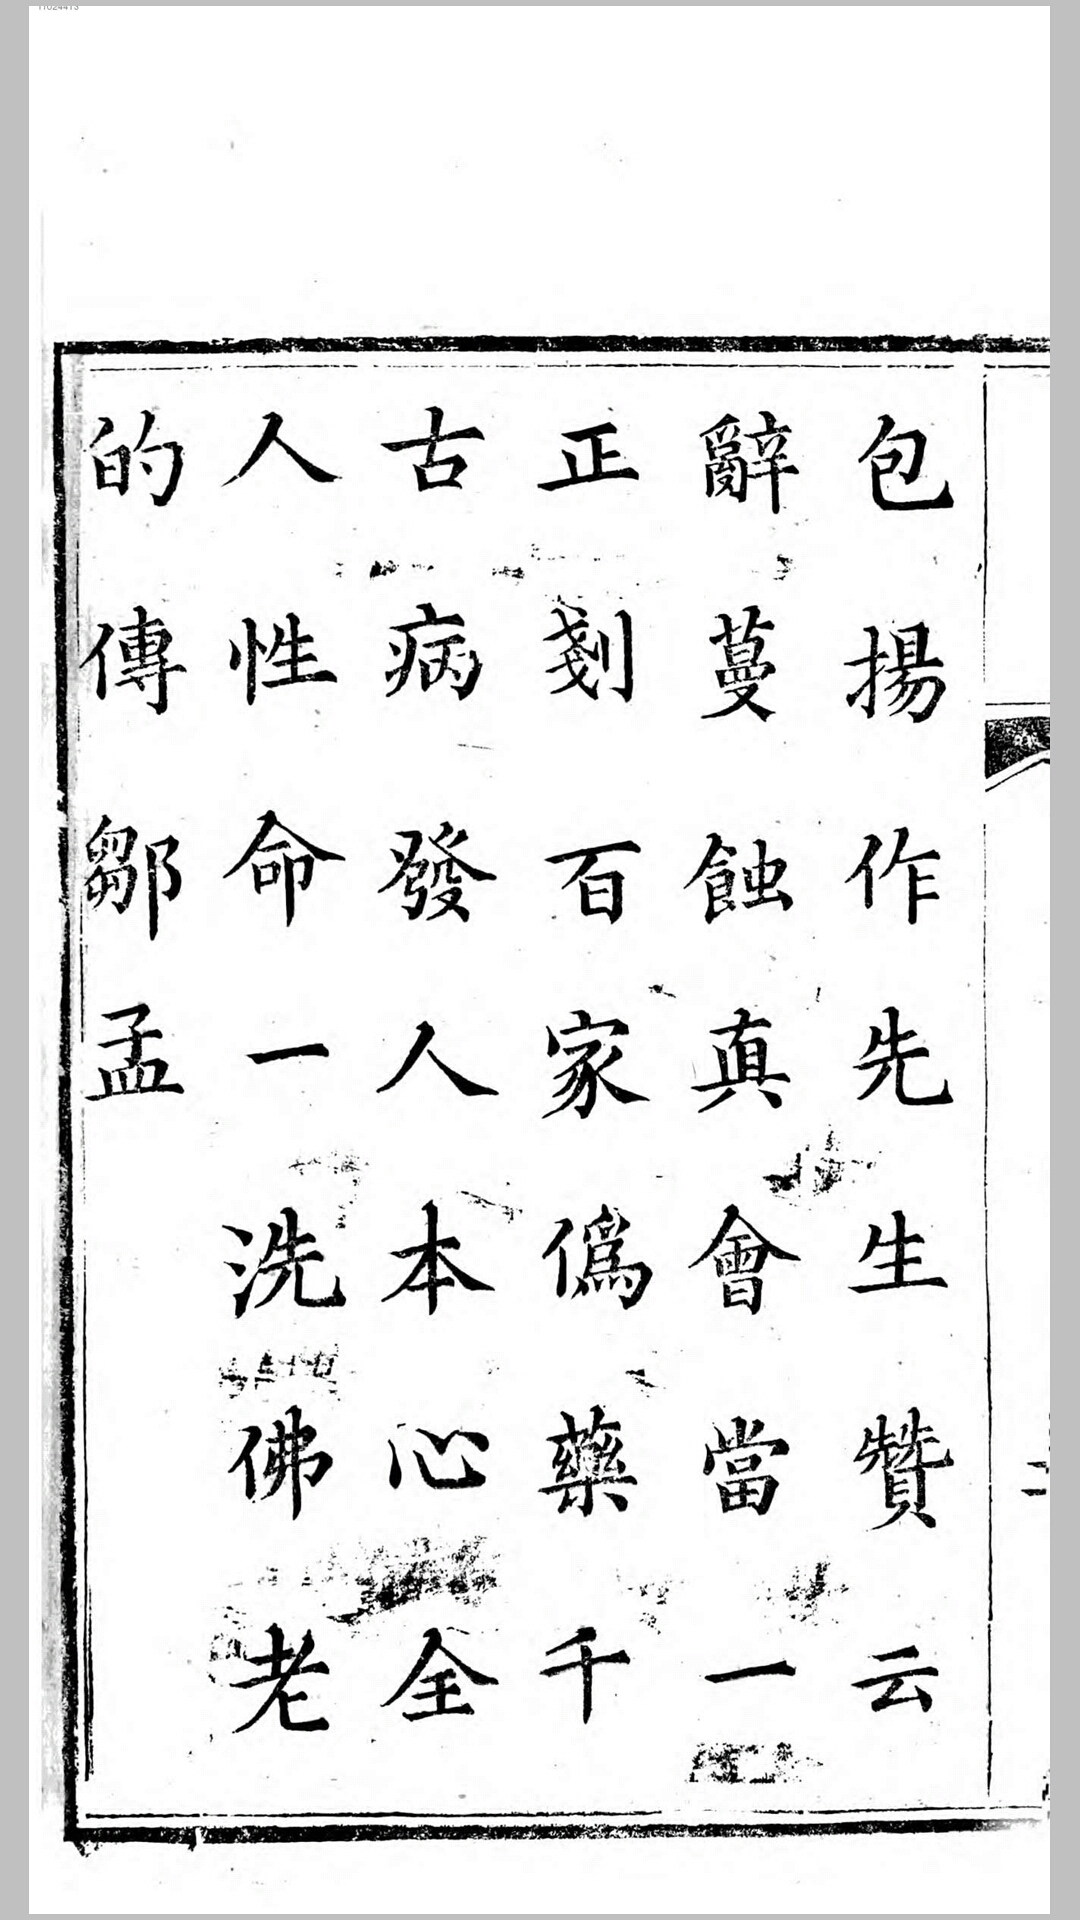 包揚作先生贊云
辭蔓蝕真會當一
正剗百家僞藥千
古病發人本心全
人性命一洗佛老
的傳鄒孟